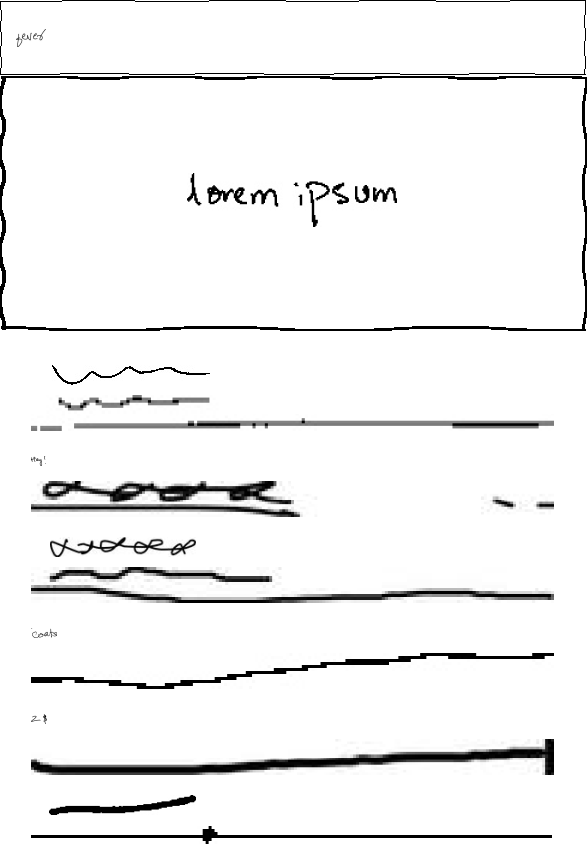 fever
lorem ipsum
Hey!
Coats
2 $